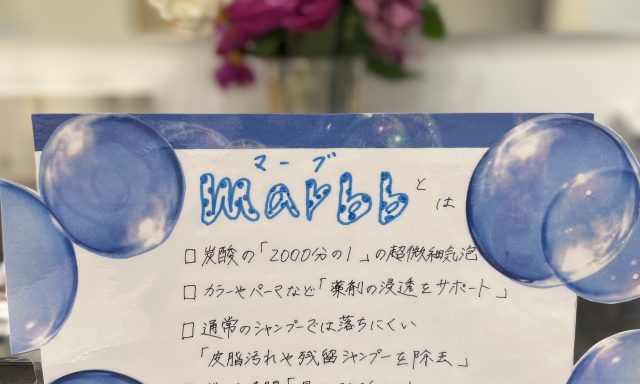 マーブ
marbb とは
□ 炭酸の「2000分の1」の超微細気泡
□ カラーやパーマなど「薬剤の浸透をサポート」
□ 通常のシャンプーでは落ちにくい
「皮脂汚れや残留シャンプーを除去」